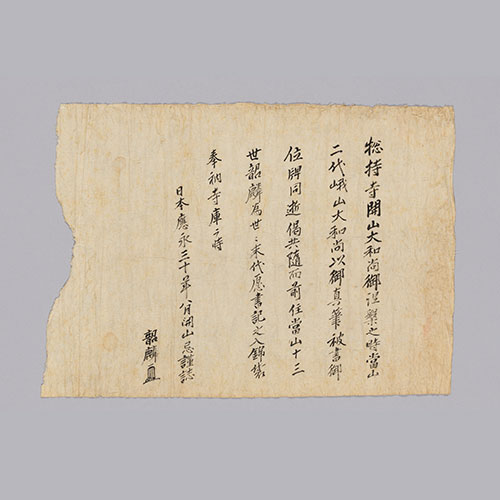 捴持寺開山大和尚御涅槃之時當山
二代峨山大和尚以御真筆被書御
位牌同逝偈共随而前住當山十三
世韶麟為世〻末代愿書記之入錦袋
奉納寺庫于時
日本應永三十年八月開山忌謹誌
韶麟